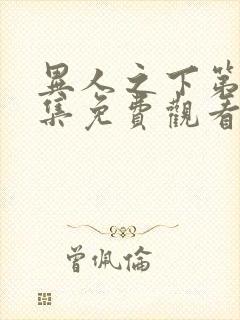 異人之下第
集免費觀看
曾佩倫